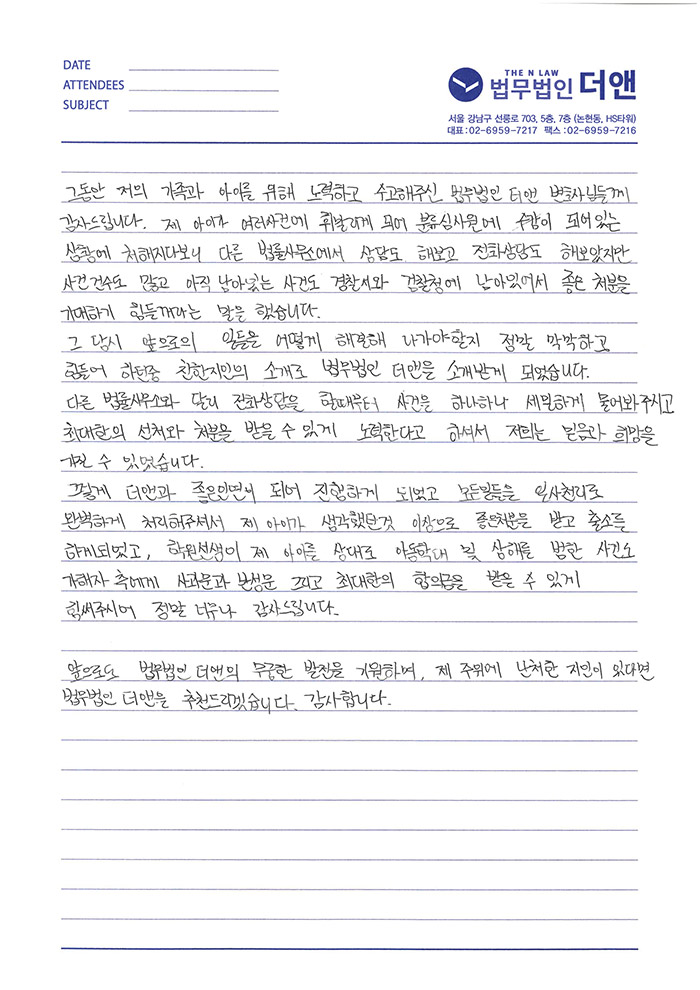 DATE
ATTENDEES
SUBJECT
THE N LAW
법무법인 더앤
서울 강남구 선릉로 703, 5층, 7층 (논현동, HS타워)
대표:02-6959-7217 팩스:02-6959-7216
그동안 저의 가족과 아이를 위해 노력하고 수고해주신 법무법인 더앤 변호사님들께
감사드립니다. 제 아이가 여러사건에 휘말리게 되어 분류심사원에 수감이 되어있는
상황에 처해지다보니 다른 법률사무소에서 상담도 해보고 전화상담도 해보았지만
사건건수도 많고 아직 남아있는 사건도 경찰서와 검찰청에 남아있어서 좋은 처분을
기대하기 힘들꺼라는 말을 했습니다.
그 당시 앞으로의 일들을 어떻게 해결해 나가야할지 정말 막막하고
힘들어 하던중 친한지인의 소개로 법무법인 더앤을 소개받게 되었습니다.
다른 법률사무소와 달리 전화상담을 할때부터 사건을 하나하나 세밀하게 물어봐주시고
최대한의 선처와 처분을 받을 수 있게 노력한다고 하셔서 저희는 믿음과 희망을
가질 수 있었습니다.
그렇게 더앤과 좋은인연이 되어 진행하게 되었고 모든일들을 일사천리로
완벽하게 처리해주셔서 제 아이가 생각했던것 이상으로 좋은처분을 받고 출소를
하게되었고, 학원선생이 제 아이를 상대로 아동학대 및 상해를 범한 사건도
가해자 측에게 사과문과 반성문 그리고 최대한의 합의금을 받을 수 있게
힘써주시어 정말 너무나 감사드립니다.
앞으로도 법무법인 더앤의 무궁한 발전을 기원하며, 제 주위에 난처한 지인이 있다면
법무법인 더앤을 추천드리겠습니다. 감사합니다.